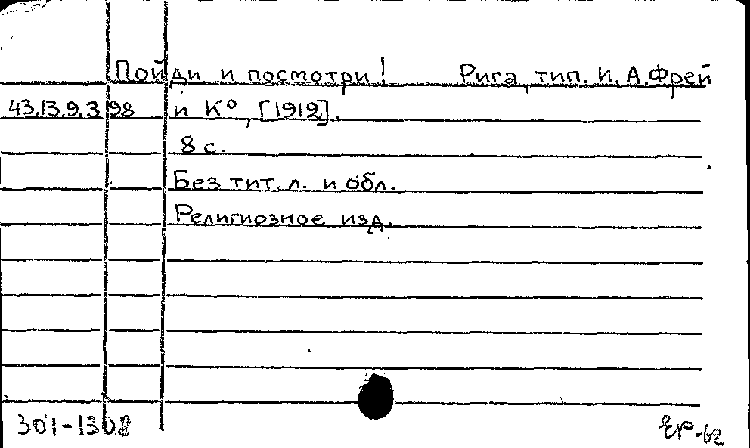 Пойди и посмотри! Рига, тип. И. А. Фрей
43.13.9.398 и К°, [1912].
8 с.
Без тит. л. и обл.
Религиозное изд.
301-1302